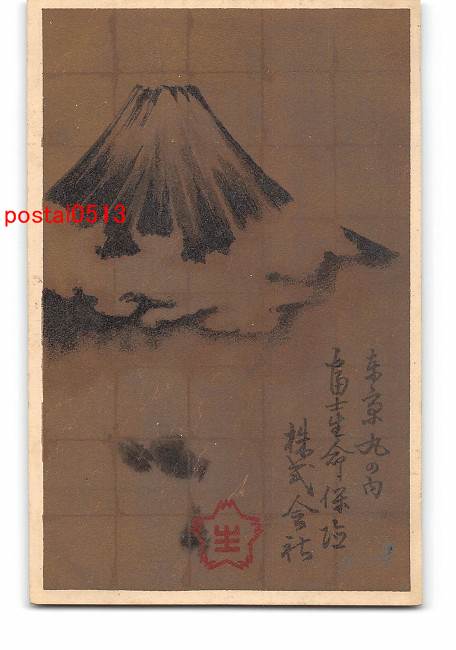 postal0513
東京丸の内
富士生命保険
株式会社
生